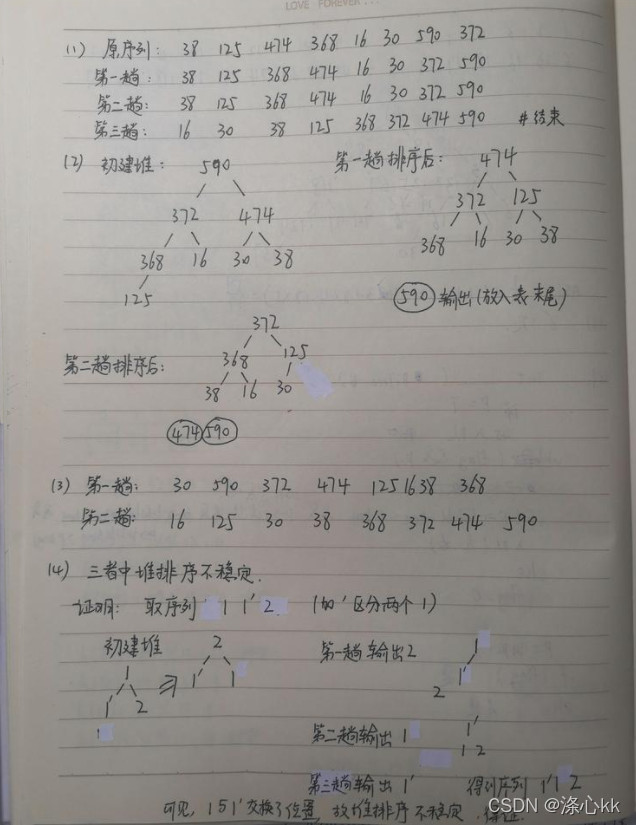 LOVE FOREVER...
(1) 原序列: 38 125 474 368 16 30 590 372
第一趟: 38 125 368 474 16 30 372 590
第二趟: 38 125 368 474 16 30 372 590
第三趟: 16 30 38 125 368 372 474 590 #结束
(2) 初建堆: 590
372 474
368 16 30 38
125
第一趟排序后: 474
372 125
368 16 30 38
590 输出(放入表末尾)
第二趟排序后:
372
368 125
38 16 30
474 590
(3) 第一趟: 30 590 372 474 125 16 38 368
第二趟: 16 125 30 38 368 372 474 590
(4) 三者中堆排序不稳定.
证明: 取序列 1 1' 2 (加'区分两个1)
初建堆
1
1' 2
⇒
2
1' 1
第一趟输出2
1
1'
2
第二趟输出1
1'
1 2
第三趟输出1' 得到序列 1' 1 2
可见, 1与1'交换了位置, 故堆排序不稳定
CSDN @涤心kk